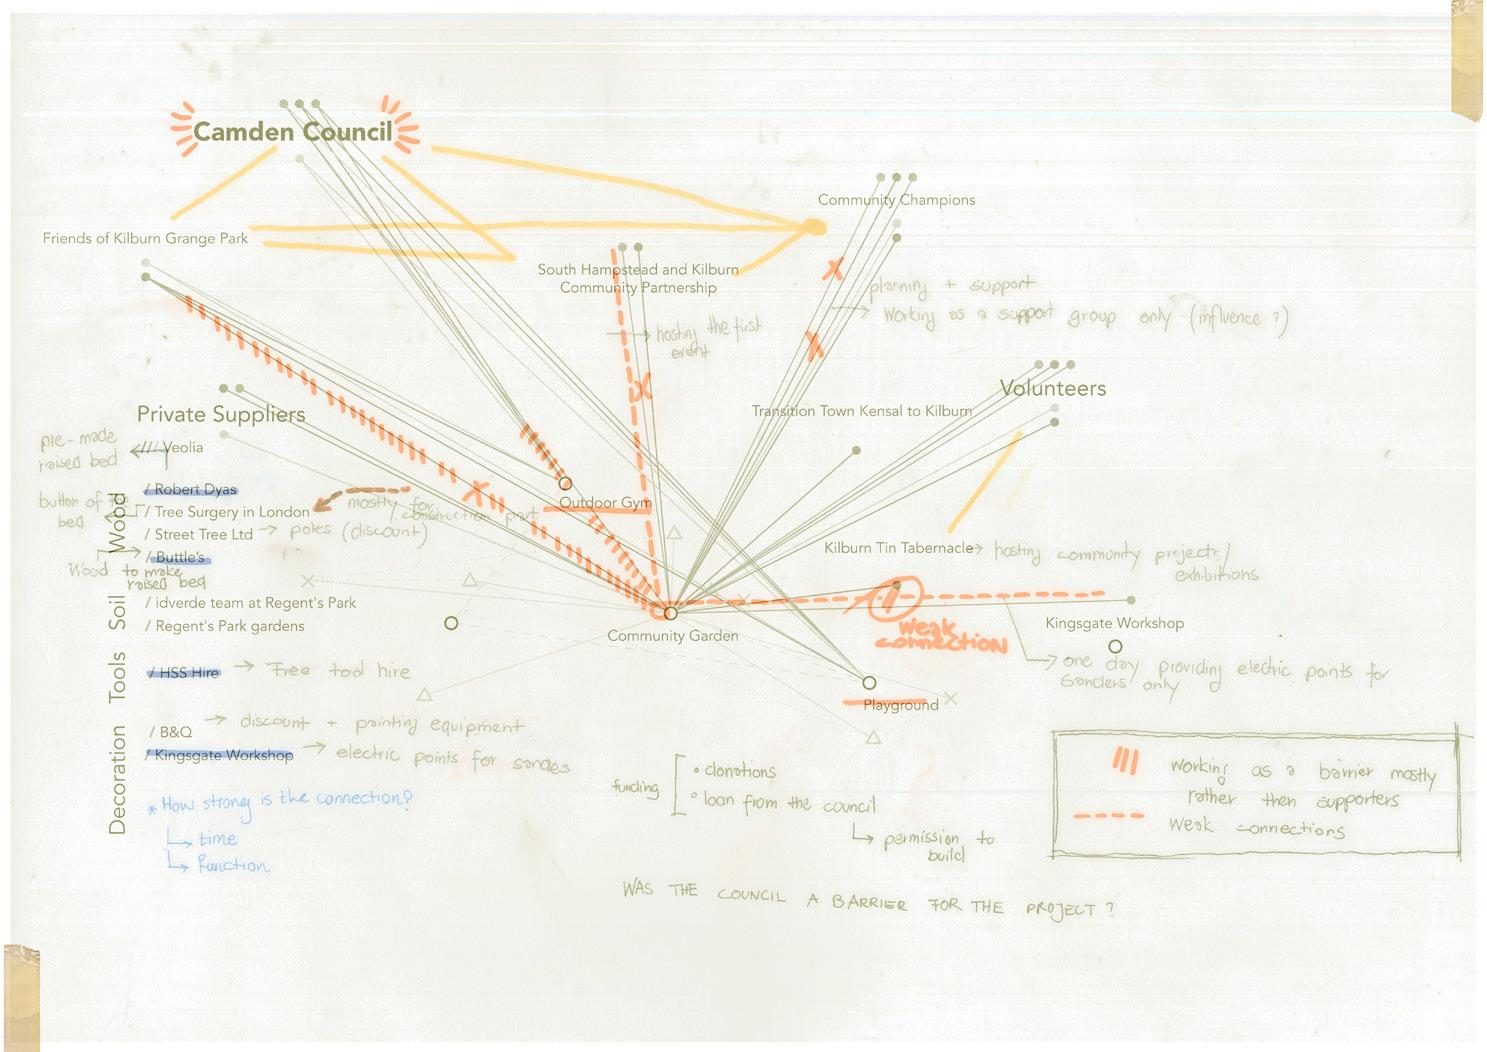 Camden Council
Community Champions
Friends of Kilburn Grange Park
South Hampstead and Kilburn
Community Partnership
planning + support
Working as a support group only (influence ?)
hosting the first
event
Volunteers
Transition Town Kensal to Kilburn
Private Suppliers
pre-made
raised bed
/// Veolia
Wood
/ Robert Dyas
button of the
bed
/ Tree Surgery in London
mostly for
construction part
/ Street Tree Ltd
poles (discount)
/ Buttle's
Wood to make
raised bed
Outdoor Gym
Kilburn Tin Tabernacle
hosting community projects/
exhibitions
Soil
/ idverde team at Regent's Park
/ Regent's Park gardens
Community Garden
weak
connection
Kingsgate Workshop
one day providing electric points for
sanders only
Tools
/ HSS Hire
Free tool hire
Playground
Decoration
/ B&Q
discount + painting equipment
/ Kingsgate Workshop
electric points for sandes
* How strong is the connection?
time
function
funding
• donations
• loan from the council
permission to
build
working as a barrier mostly
rather then supporters
weak connections
WAS THE COUNCIL A BARRIER FOR THE PROJECT ?